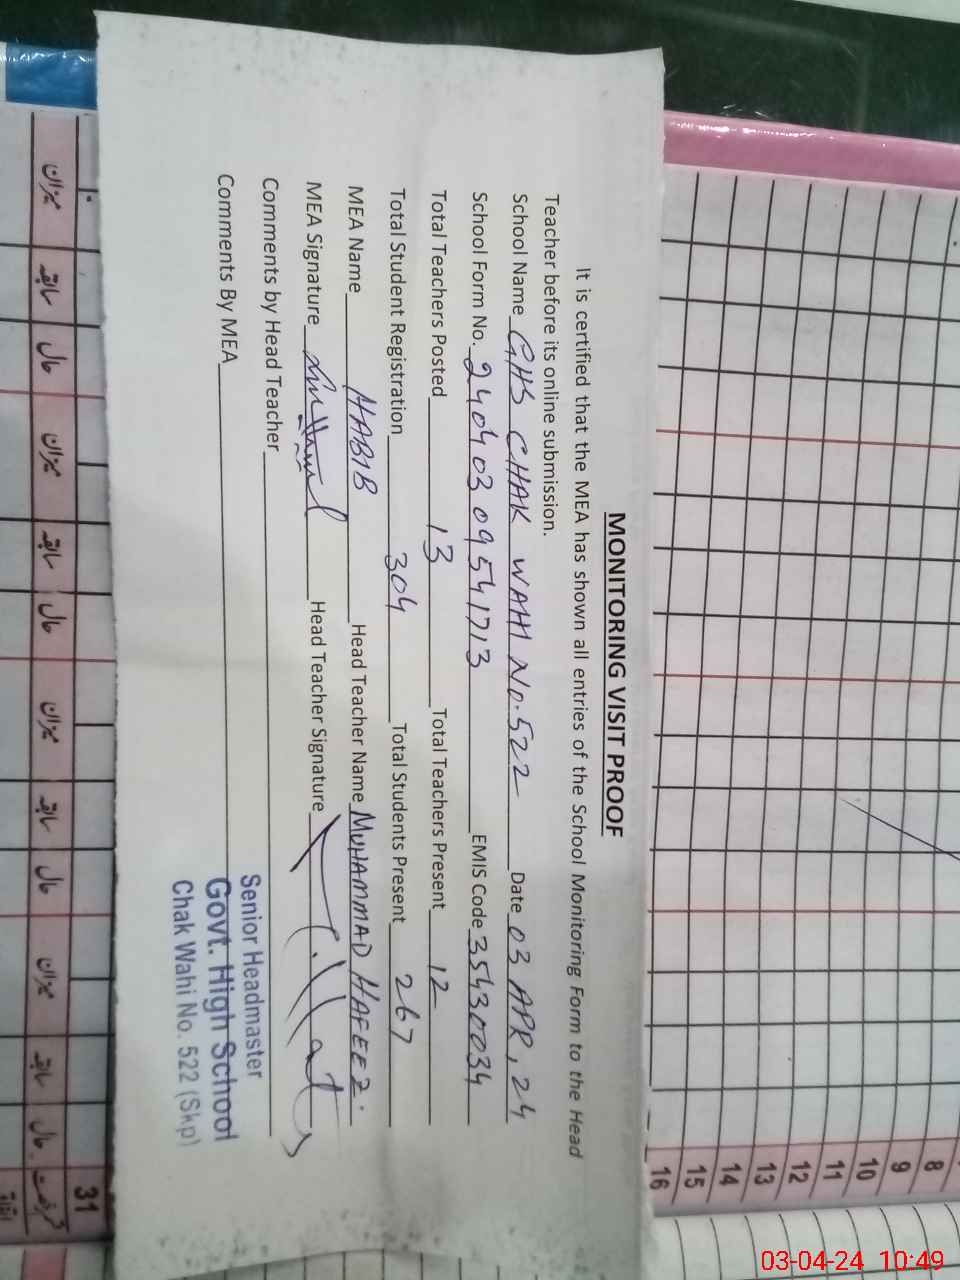 MONITORING VISIT PROOF
It is certified that the MEA has shown all entries of the School Monitoring Form to the Head
Teacher before its online submission.
School Name GHS CHAK WAHI No.522 Date 03 APR, 24
School Form No. 24040309541713 EMIS Code 35430034
Total Teachers Posted 13 Total Teachers Present 12
Total Student Registration 304 Total Students Present 267
MEA Name HABIB Head Teacher Name MUHAMMAD HAFEEZ.
MEA Signature Head Teacher Signature
Comments by Head Teacher
Comments By MEA
Senior Headmaster
Govt. High School
Chak Wahi No. 522 (Skp)
8
9
10
11
12
13
14
15
16
31
میزان سابقہ حال میزان سابقہ حال میزان سابقہ حال میزان سابقہ حال
03-04-24 10:49